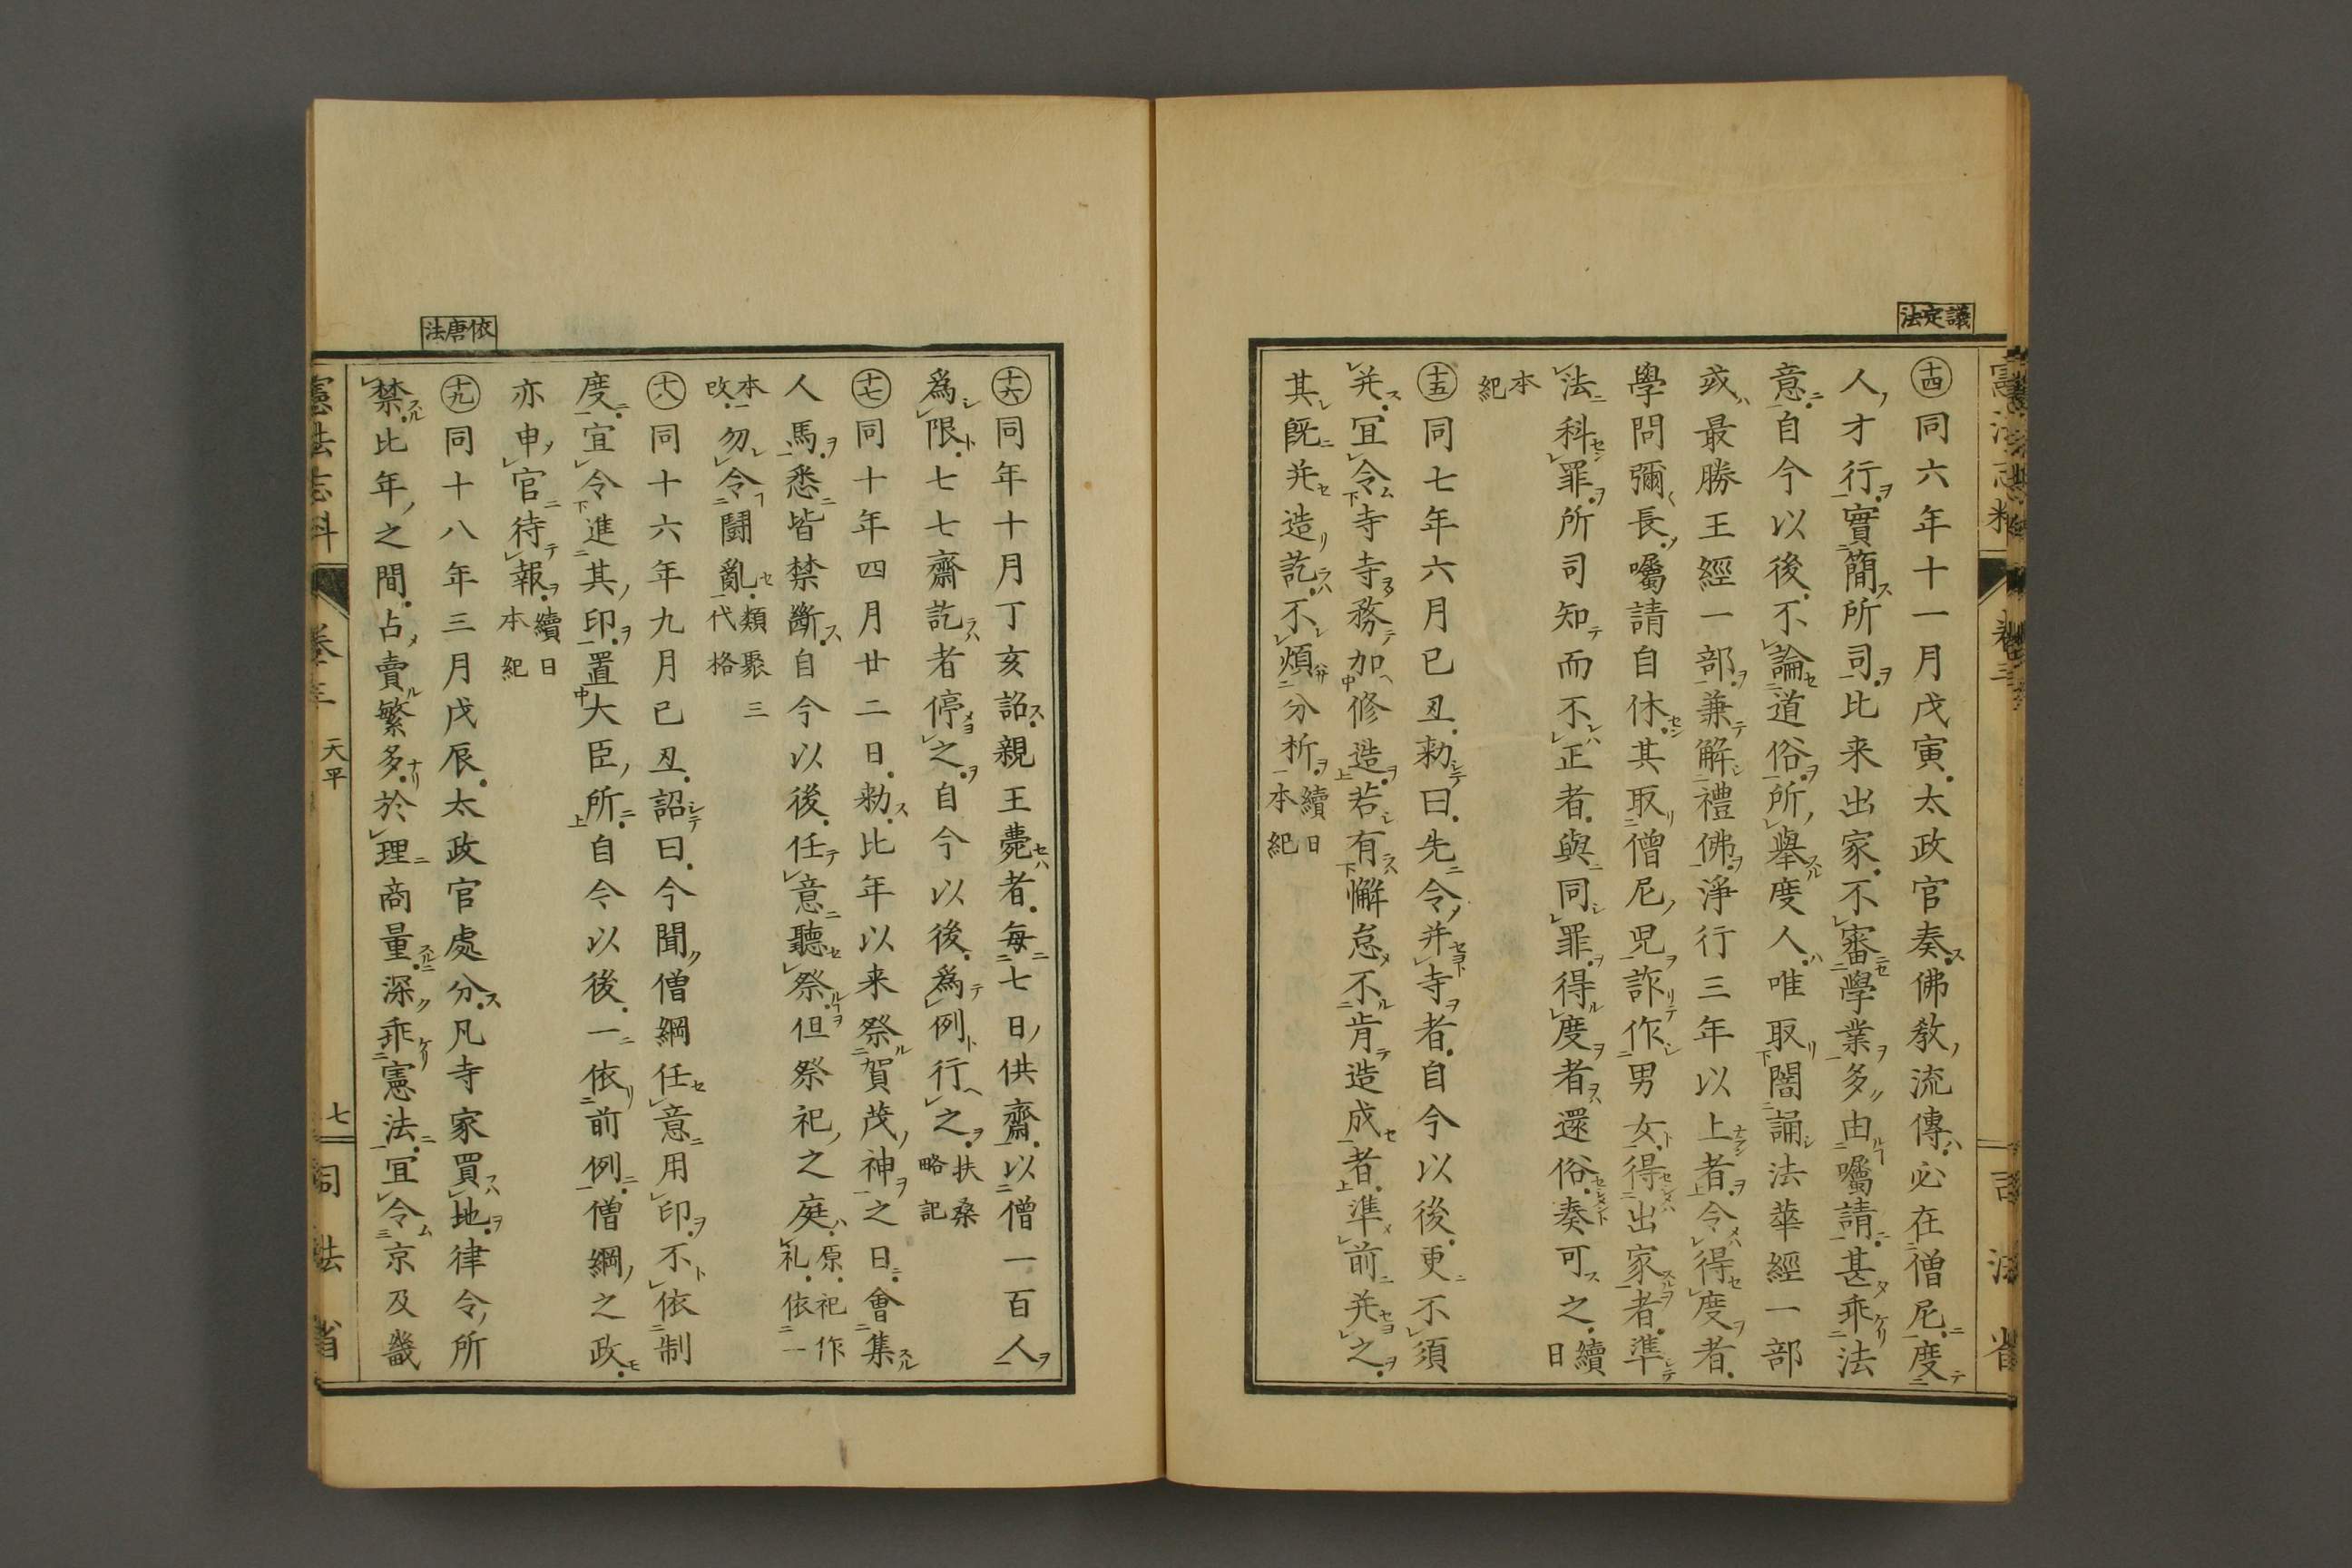 議定法
㊉四同六年十一月戊寅太政官奏佛教流傳必在僧尼度
人才行實簡所司比来出家不審學業多由囑請甚乖法
意自今以後不論道俗所舉度人唯取闇誦法華經一部
或最勝王經一部兼解禮佛淨行三年以上者令得度者
學問彌長囑請自休其取僧尼兒詐作男女得出家者準
法科罪所司知而不正者與同罪得度者還俗奏可之續日
本紀
十五同七年六月己丑勅曰先令并寺者自今以後更不須
并宜令寺寺務加修造若有懈怠不肯造成者準前并之
其既并造訖不煩分析續日本紀
十六同年十月丁亥詔親王薨者每七日供齋以僧一百人
爲限七七齋訖者停之自今以後爲例行之扶桑略記
十七同十年四月廿二日勅比年以来祭賀茂神之日會集
人馬悉皆禁斷自今以後任意聽祭但祭祀之庭原祀作礼依一
本改勿令鬪亂類聚三代格
十八同十六年九月己丑詔曰今聞僧綱任意用印不依制
度宜令進其印置大臣所自今以後一依前例僧綱之政
亦申官待報續日本紀
依唐法
十九同十八年三月戊辰太政官處分凡寺家買地律令所
禁比年之間占賣繁多於理商量深乖憲法宜令京及畿
憲法志料 卷三 天平 七 司法省